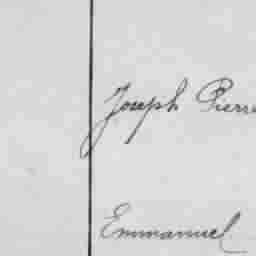 Joseph Pierre
Emmanuel